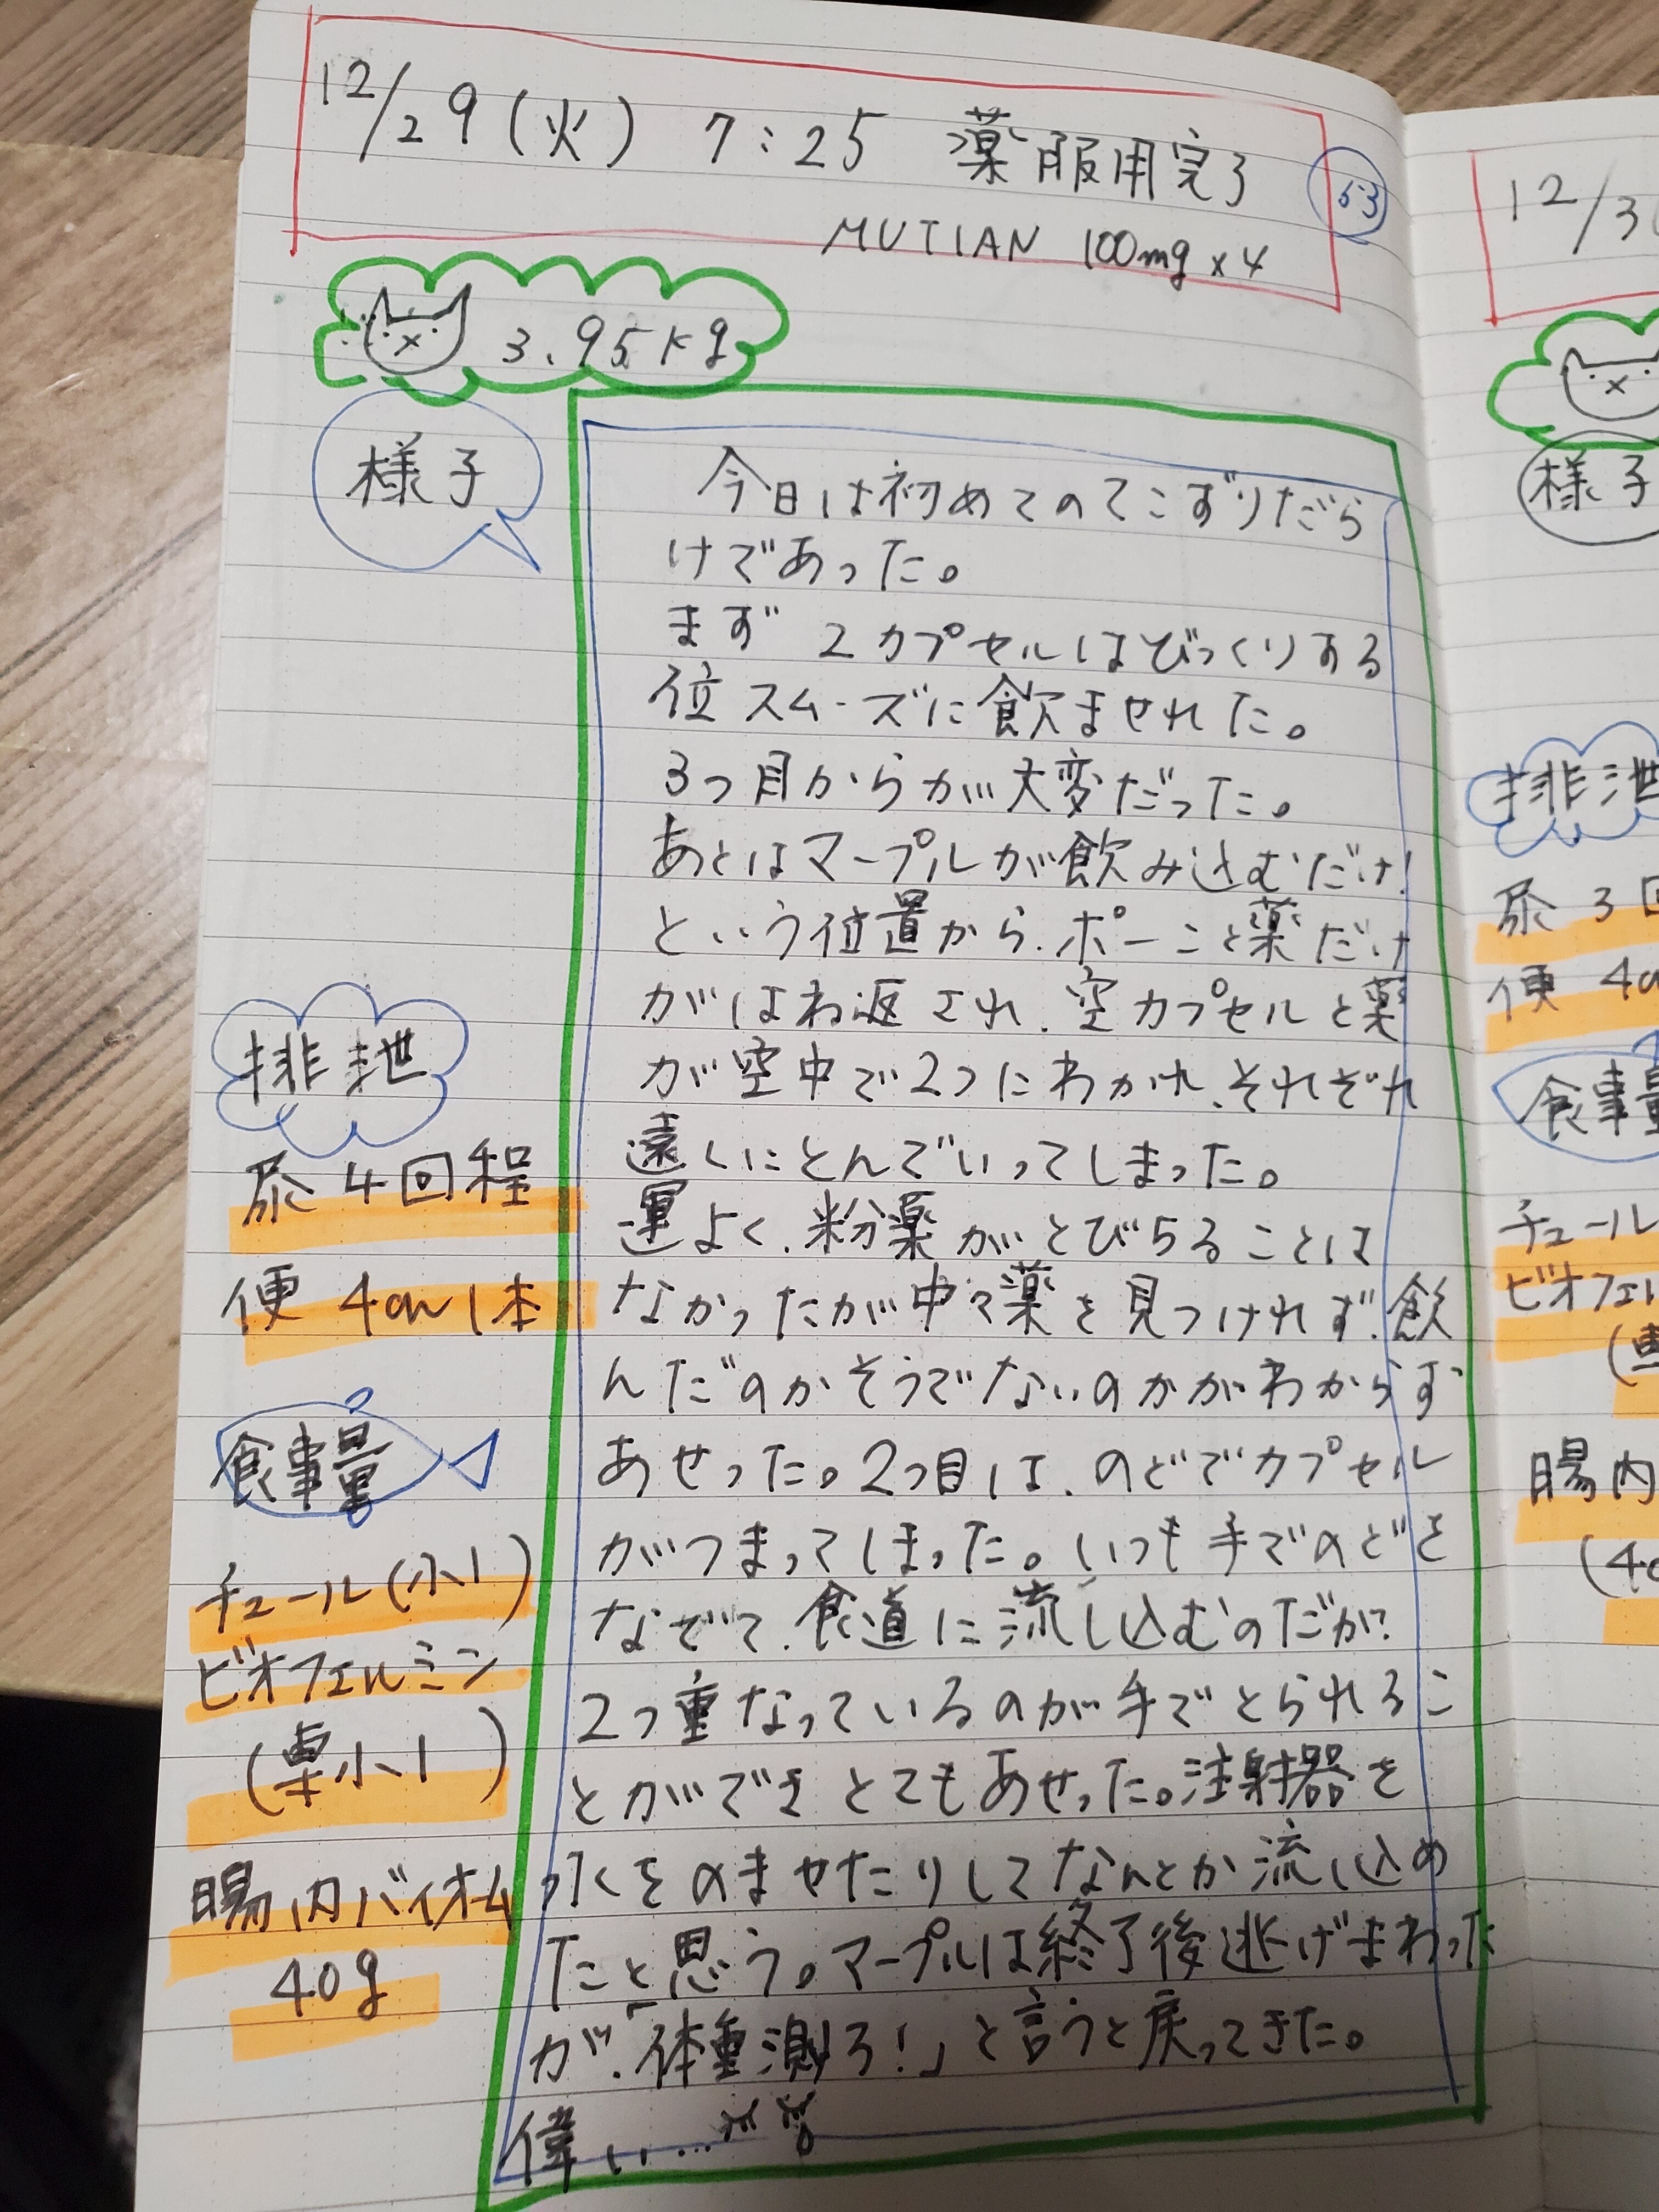 12/29(火) 7:25 薬服用完了
53
MUTIAN 100mg×4
3.95kg
様子
今日は初めてのてこずりだら
けであった。
まず 2カプセルはびっくりする
位スムーズに飲ませれた。
3つ目からが大変だった。
あとはマープルが飲み込むだけ!
という位置から、ポーンと薬だけ
がはね返され、空カプセルと薬
が空中で2つにわかれ、それぞれ
遠くにとんでいってしまった。
運よく、粉薬がとびちることは
なかったが中々薬を見つけれず、飲
んだのかそうでないのかがわからず
あせった。2つ目は、のどでカプセル
がつまってしまった。いつも手でのどを
なでて、食道に流し込むのだが?
2つ重なっているのが手でとられるこ
とができとてもあせった。注射器を
水をのませたりしてなんとか流し込め
たと思う。マープルは終了後逃げまわった
が、「体重測ろ!」と言うと戻ってきた。
偉い…
排泄
尿 4回程
便 4cm 1本
食事量
チュール(小1)
ビオフェルミン
(小1)
腸内バイオーム
40g
12/30
様子
排泄
尿 3回
便 4cm
食事量
チュール
ビオフェル
腸内
(40